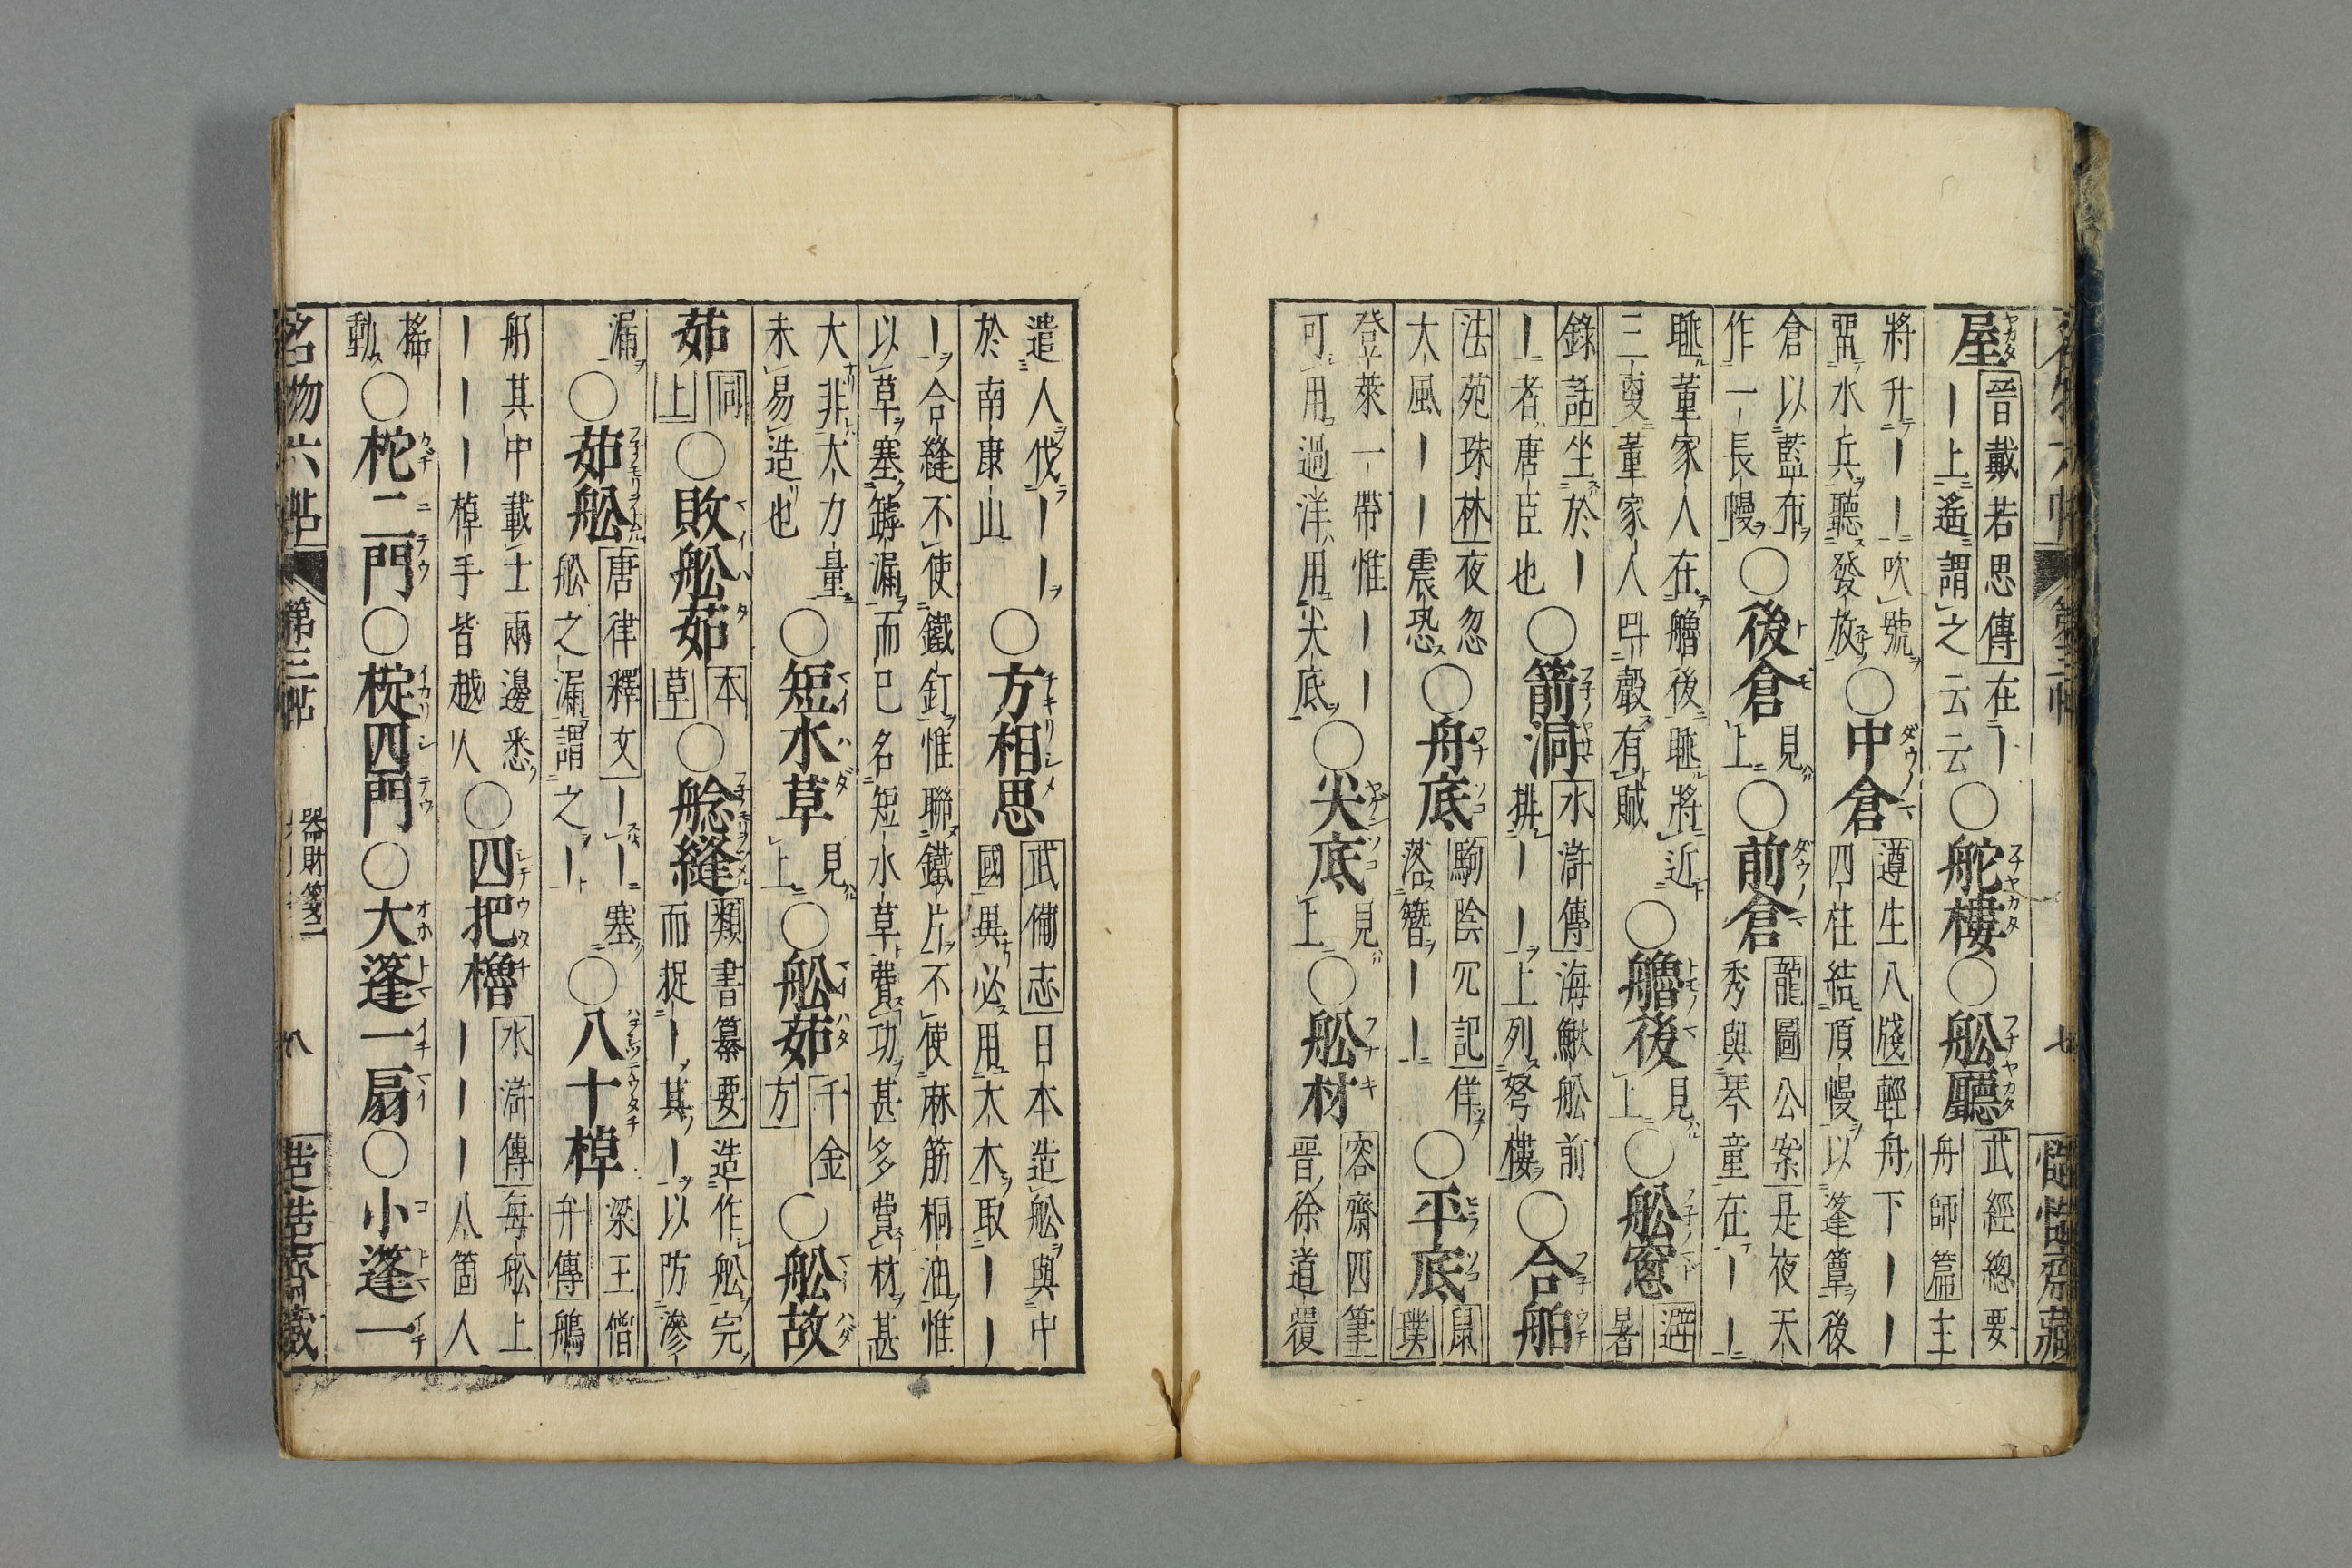 屋 晉戴若思傳 在ー
ー上遙謂之云云 ○舵樓○舩廳 武經總要
舟師篇 主
將升ーーー吹號
畱水兵聽發放 ○中倉 遵生八牋 輕舟下ーー
四柱結頂幔以篷簟後
倉以藍布
作一長幔 ○後倉 見上 ○前倉 龍圖公案 是夜天
秀與琴童在ーー
董家人在艪後 將近
三更董家人 有賊 ○艪後 見上 ○舩窻 避
暑
錄話 坐於ー
ー者唐臣也 ○箭洞 水滸傳 海鰍舩前
排ーー上列弩樓 ○合舶
法苑珠林 夜忽
大風ーー震恐 ○舟底 駒陰冗記 佯
落簪ーー ○平底 鼠
璞
登萊一帶惟ーー
可用過洋用尖底 ○尖底 見上 ○舩材 容齋四筆
晉徐道覆
遣人伐ーー
於南康山 ○方相思 武備志 日本造舩與中
國異必用大木取ーー
ー合縫不使鐵釘惟聯鐵片不使麻筋桐油惟
以草塞罅漏而已名短水草費功甚多費材甚
大非大力量
未易造也 ○短水草 見上 ○舩茹 千金
方 ○舩故
茹 同上 ○敗舩茹 本草 ○艌縫 類書纂要 造作舩完
而捉ー其ー以防滲
漏 ○茹舩 唐律釋文 ーー塞
舩之漏謂之ー ○八十棹 梁王僧
弁傳 鵃
舠其中載士兩邊悉
ーーー棹手皆越人 ○四把櫓 水滸傳 每舩上
ーーー八箇人
搖
動 ○柁二門○椗四門○大篷一扇○小篷一
名物六帖 第三帖 器財箋二 八